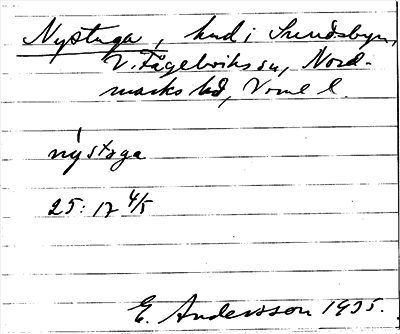 Nystuga, hmd i Sundsbyn,
V. Fågelviks sn, Nord-
marks hd, Vrml l.
nýstoga
25: 17 4/5
E. Andersson 1935.